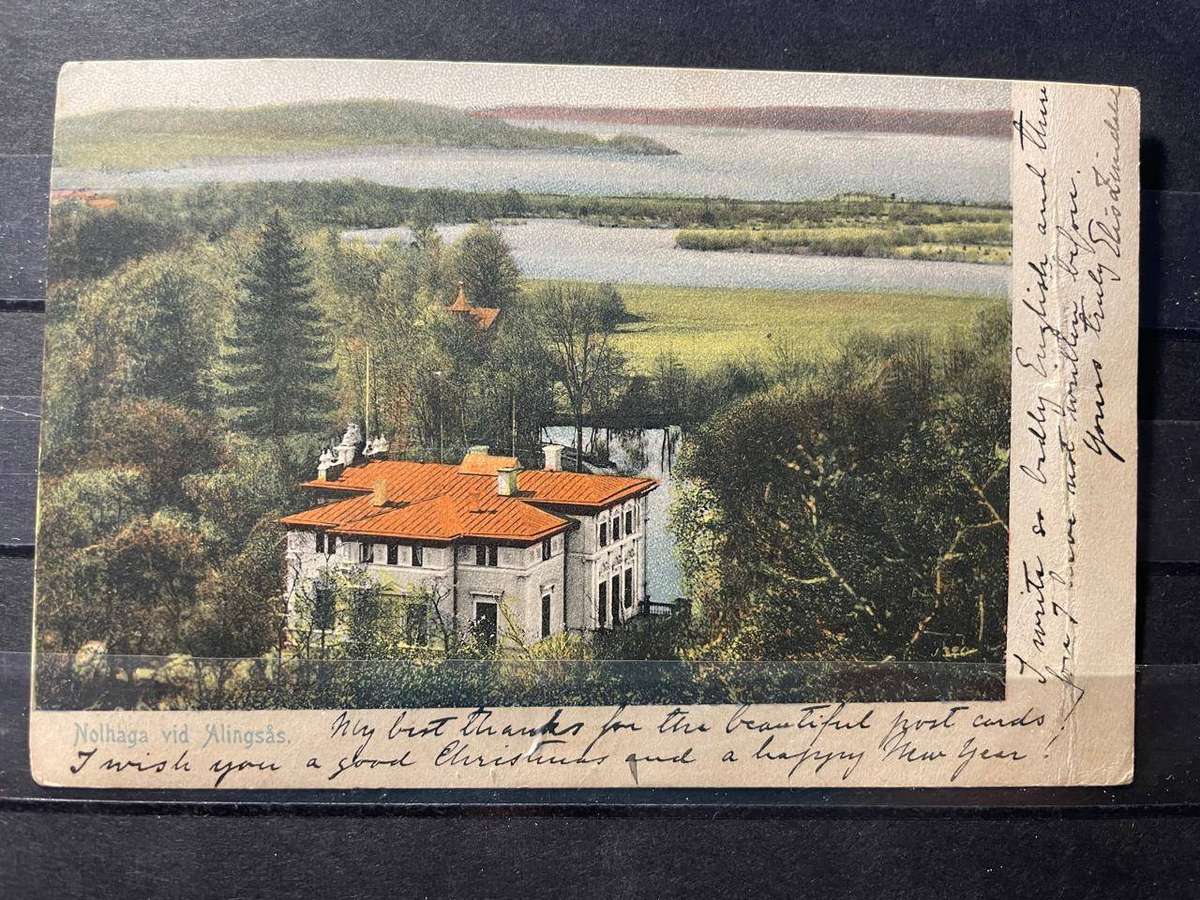 Nolhaga vid Alingsås.
My best thanks for the beautiful post cards
I wish you a good Christmas and a happy New Year!
I write so badly English and there
fore I have not written before.
Yours truly Elsa
1390